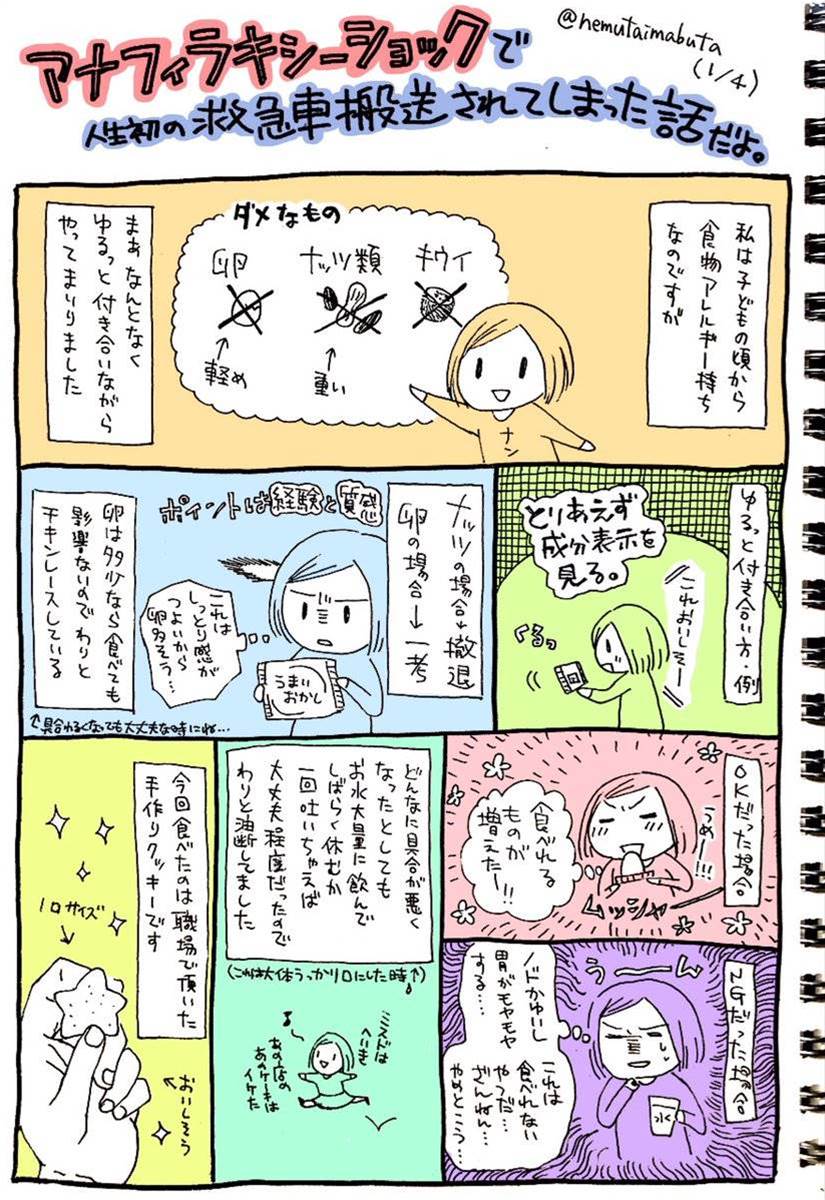 @hemutaimabuta
(1/4)
アナフィラキシーショックで
人生初の救急車搬送されてしまった話だよ。
私は子どもの頃から
食物アレルギー持ち
なのですが
ダメなもの
卵
ナッツ類
キウイ
軽め
重い
ナン
まぁなんとなく
ゆるっと付き合いながら
やってまいりました
ゆるっと付き合い方・例
とりあえず
成分表示を
見る。
これおいしそー
くるっ
ナッツの場合→撤退
卵の場合→一考
ポイントは経験と質感
これは
しっとり感が
つよいから
卵多そう…
うまい
おかし
卵は多少なら食べても
影響ないのでわりと
チキンレースしている
↑具合わるくなっても大丈夫な時にね…
OKだった場合
うめー!!!
食べれる
ものが
増えたー!!
ムッシャー
NGだった場合
うーーん
ノドかゆいし
胃がモヤモヤ
する…
これは
食べれない
やつだ…
ざんねん…
やめとこう…
水
どんなに具合が悪く
なったとしても
お水大量に飲んで
しばらく休むか
一回吐いちゃえば
大丈夫程度だったので
わりと油断してました
(これは大体うっかり口にした時↑)
ミスドは
へいき
あの店の
あのケーキは
イケた
今回食べたのは職場で頂いた
手作りクッキーです
1口サイズ
←おいしそう